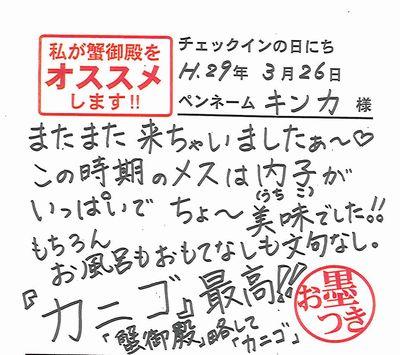 私が蟹御殿を
オススメ
します!!
チェックインの日にち
H.29年 3月26日
ペンネーム キンカ 様
またまた 来ちゃいましたぁ〜♡
この時期のメスは内子が
(うちこ)
いっぱいで ちょ〜美味でした!!
もちろん
お風呂もおもてなしも文句なし。
『カニゴ』最高!!
「蟹御殿」略して「カニゴ」
お墨つき